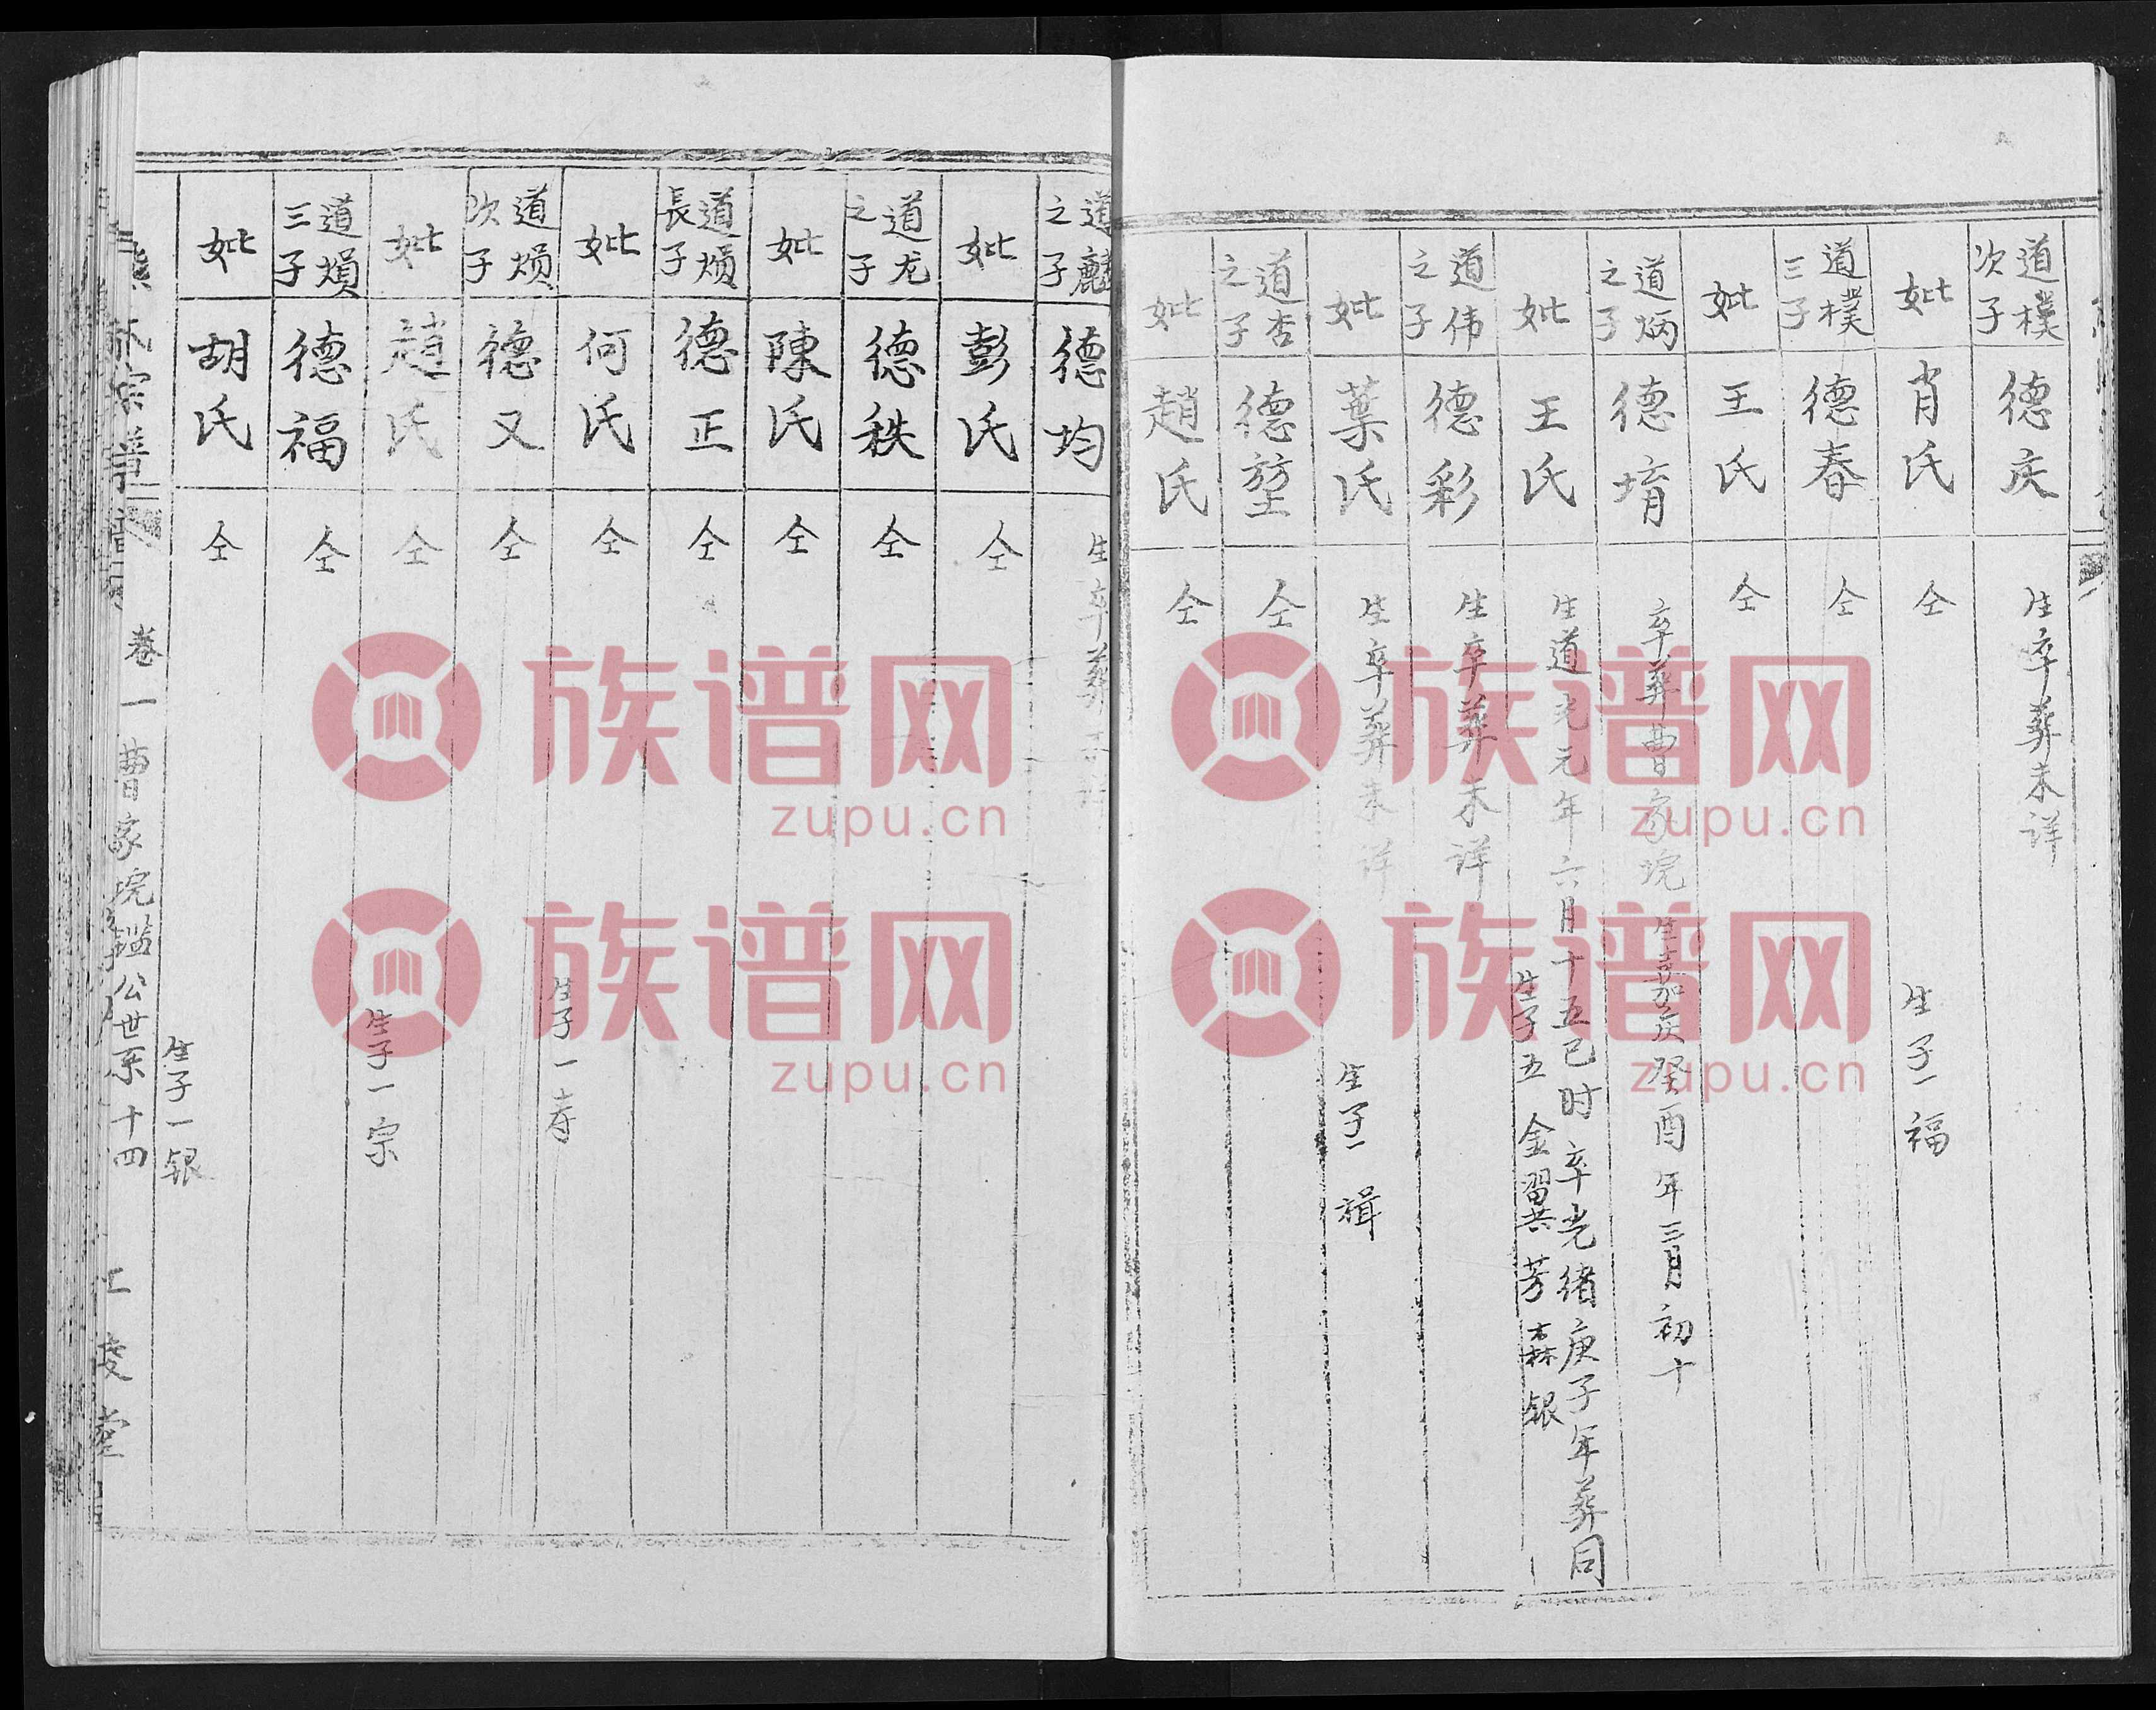 道樸次子
德庆
生卒葬未详
妣
肖氏
仝
生子一福
道樸三子
德春
仝
妣
王氏
仝
道炳之子
德堉
生嘉庆癸酉年三月初十
卒葬曹家垸
妣
王氏
生道光元年六月十五巳时卒光绪庚子年葬同
生子五 金 习共 芳 森 银
道伟之子
德彩
生卒葬未详
妣
葉氏
生卒葬未详
生子一 楫
道杏之子
德
仝
妣
趙氏
仝
道麟之子
德均
生卒葬未详
妣
彭氏
仝
道龙之子
德秩
仝
妣
陳氏
仝
道熉長子
德正
仝
妣
何氏
仝
生子一寿
道熉次子
德又
仝
妣
趙氏
仝
生子一宗
道熉三子
德福
仝
妣
胡氏
仝
生子一银
氏宗譜
卷一 曹家垸鑑公世系 十四
族谱网
zupu.cn
族谱网
zupu.cn
族谱网
zupu.cn
族谱网
zupu.cn